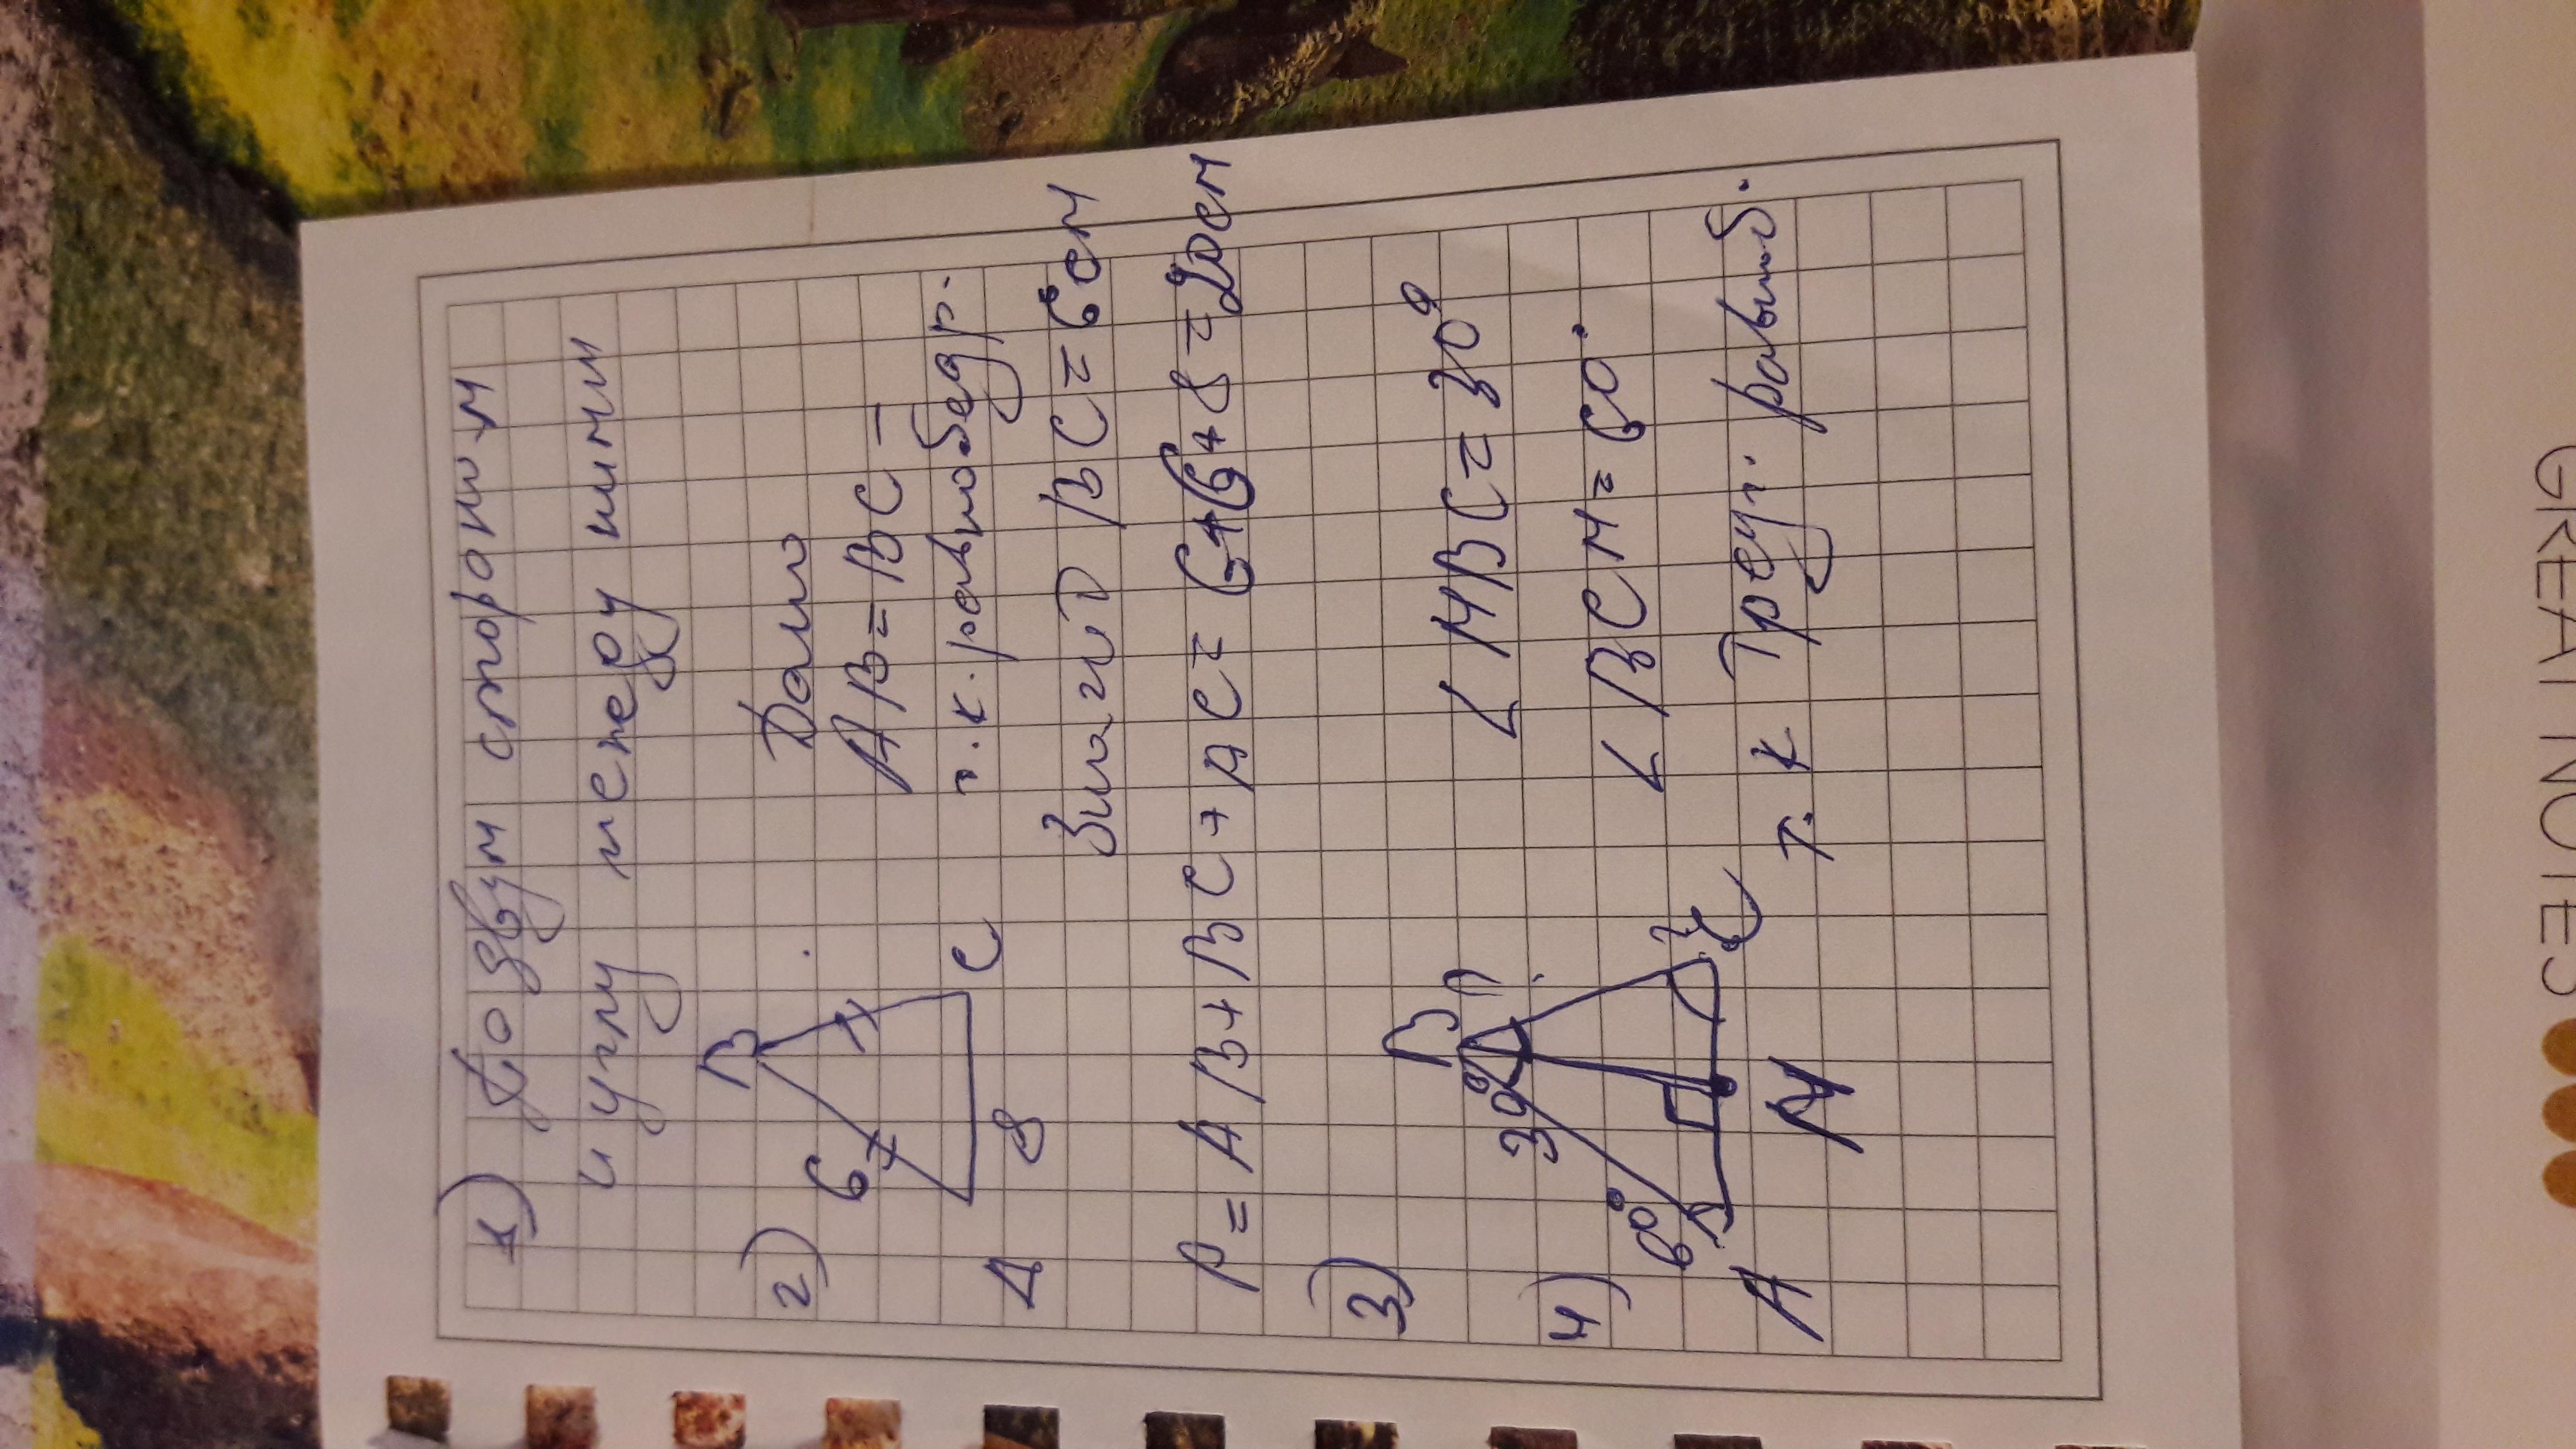 1) По двум сторонам
и углу между ними
2) B Дано
6 AB = BC –
A 8 C т.к. равнобедр.
Значит BC = 6 см
P = AB + BC + AC = 6+6+8 = 20см
3) B ∠MBC = 30°
30°
4) 60° ∠BCM = 60°
A M C т.к треуг. равноб.
GREAT NOTES